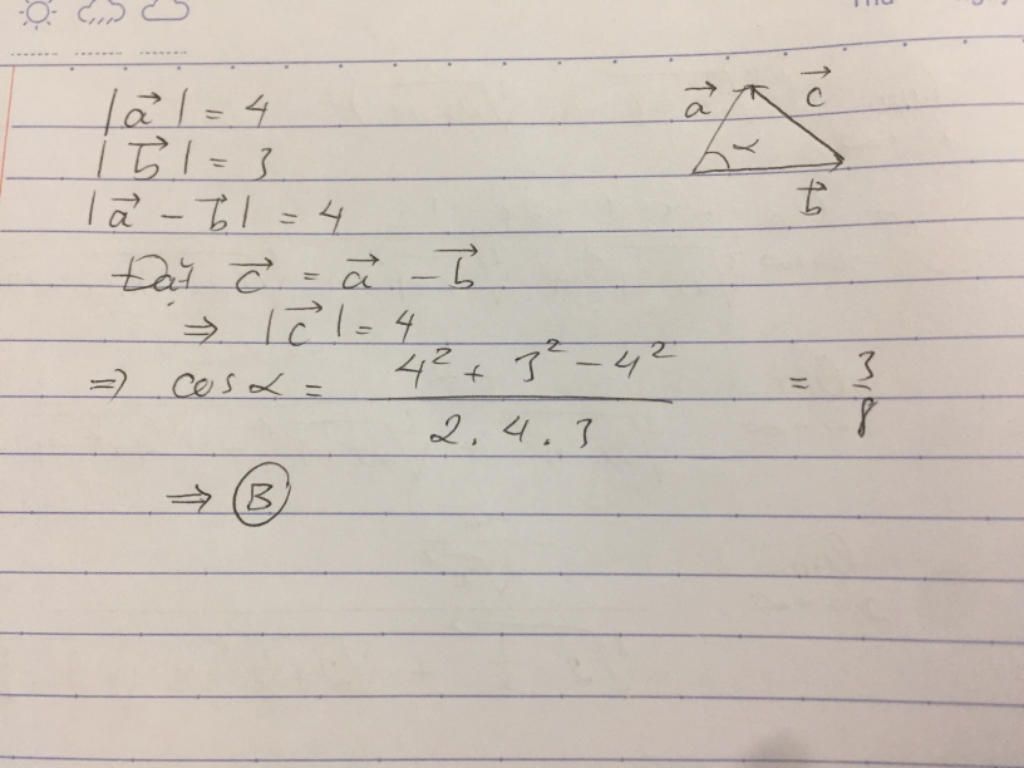 |a⃗| = 4
|b⃗| = 3
|a⃗ - b⃗| = 4
Đặt c⃗ = a⃗ - b⃗
⇒ |c⃗| = 4
⇒ cos α = (4² + 3² - 4²) / (2 . 4 . 3) = 3/8
⇒ B
a⃗ c⃗
α
b⃗